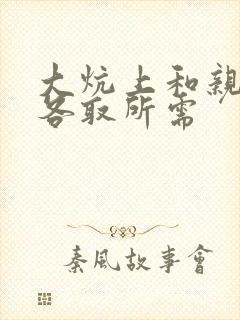 大炕上和親
各取所需
秦風故事會